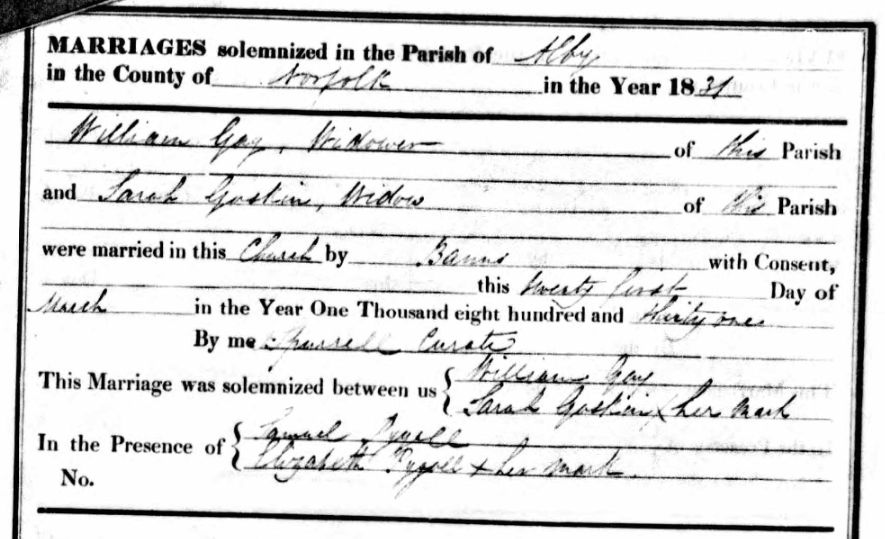 MARRIAGES solemnized in the Parish of Alby
in the County of Norfolk in the Year 1831
William Gay, Widower of this Parish
and Sarah Goskin, Widow of this Parish
were married in this Church by Banns with Consent,
this twenty first Day of
March in the Year One Thousand eight hundred and thirty one
By me Spurrell Curate
This Marriage was solemnized between us William Gay
Sarah Goskin x her mark
In the Presence of Samuel
Elizabeth + her mark
No.